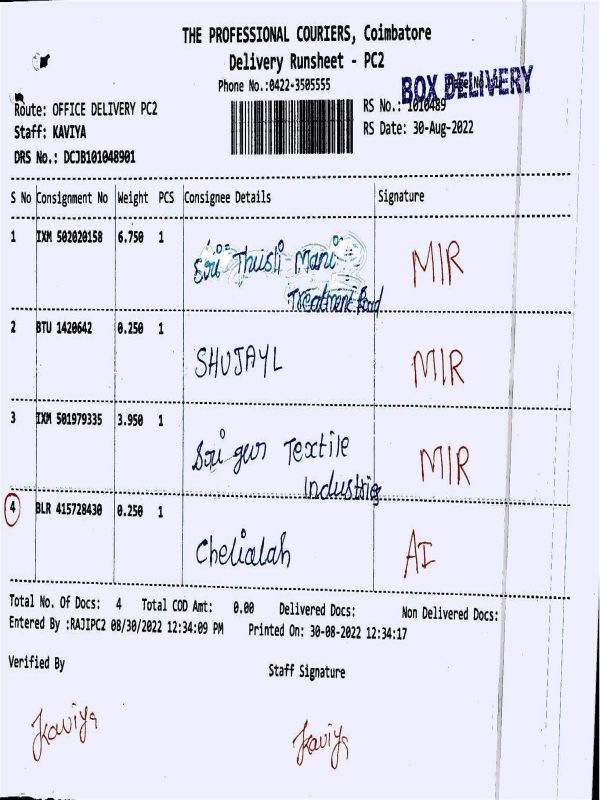 THE PROFESSIONAL COURIERS, Coimbatore
Delivery Runsheet - PC2
Phone No.:0422-3505555
BOX DELIVERY
Route: OFFICE DELIVERY PC2
RS No.: 1010489
Staff: KAVIYA
RS Date: 30-Aug-2022
DRS No.: DCJB101048901
S No Consignment No Weight PCS Consignee Details Signature
1 IXM 502020158 6.750 1 Sri Thusti Mani MIR
Treatment
2 BTU 1420642 0.250 1 SHUJAYL MIR
3 IXM 501979335 3.950 1 Sri gur Textile MIR
Industries
4 BLR 415728430 0.250 1 Chelialah AI
Total No. Of Docs: 4 Total COD Amt: 0.00 Delivered Docs: Non Delivered Docs:
Entered By :RAJIPC2 08/30/2022 12:34:09 PM Printed On: 30-08-2022 12:34:17
Verified By Staff Signature
Kaviya Kaviya